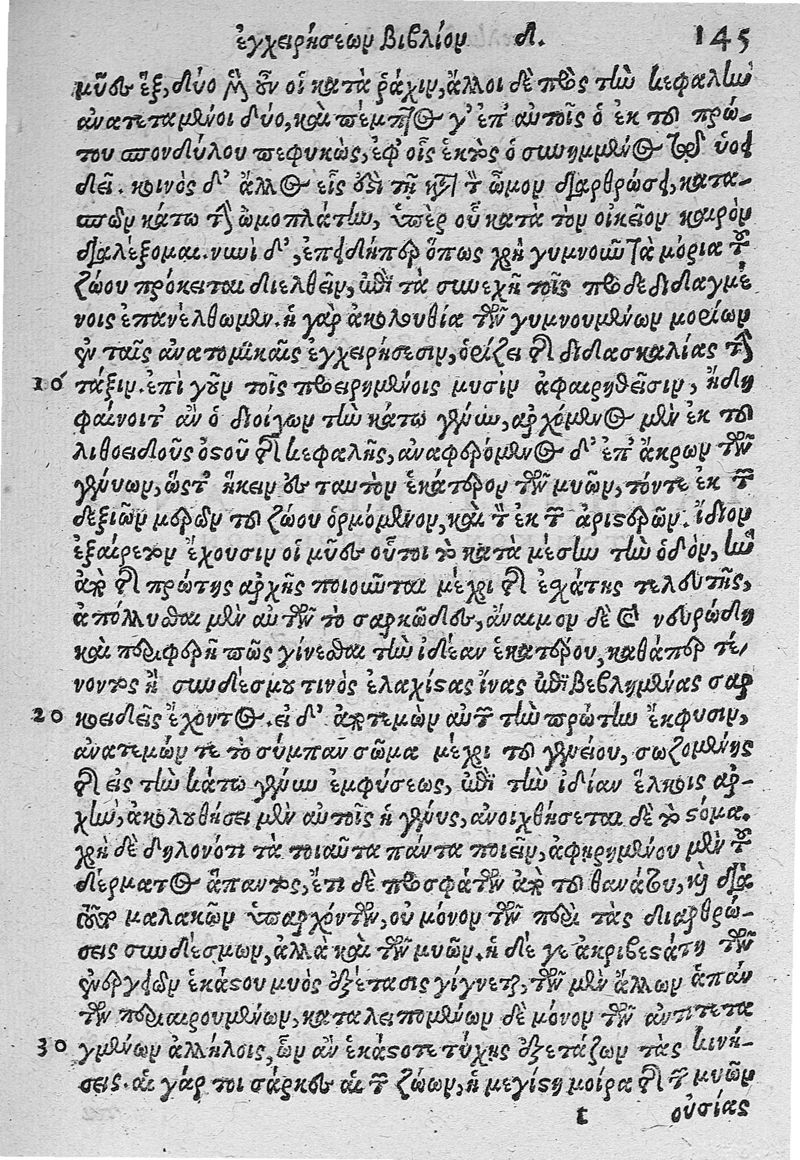 ἐγχειρήσεων βιβλίον δ. 145
μῦες ἕξ, δύο μὲν οὖν οἱ κατὰ ῥάχιν, ἄλλοι δὲ πρὸς τὴν κεφαλὴν
ἀνατεταμένοι δύο, καὶ πέμπτος γ' ἐπ' αὐτοῖς ὁ ἐκ τοῦ πρώ-
του σπονδύλου πεφυκὼς, ἐφ' οἷς ἕκτος ὁ συνημμένος τῷ ὑοει
δεῖ. κοινὸς δ' ἄλλος εἷς ἐπὶ τῇ κατὰ τὸν ὦμον διαρθρώσει, κατα-
σπῶν κάτω τὴν ὠμοπλάτην, ὑπὲρ οὗ κατὰ τον οἰκεῖον καιρὸν
διαλέξομαι. νυνὶ δ', ἐπειδήπερ ὅπως χρὴ γυμνοῦν τὰ μόρια τοῦ
ζώου πρόκειται διελθεῖν, ἐπὶ τὰ συνεχῆ τοῖς προδεδιδαγμέ
νοις ἐπανέλθωμεν. ἡ γὰρ ἀκολουθία τῶν γυμνουμένων μορίων
ἐν ταῖς ἀνατομικαῖς ἐγχειρήσεσιν, ὁρίζει τῆς διδασκαλίας τὴν
10 τάξιν. ἐπὶ γοῦν τοῖς προειρημένοις μυσὶν ἀφαιρηθεῖσιν, ἤδη
φαίνοιτ' ἀν ὁ διοίγων τὴν κάτω γένυν, ἀρχόμενος μὲν ἐκ τοῦ
λιθοειδοῦς ὀστοῦ τῆς κεφαλῆς, ἀναφερόμενος δ' ἐπ' ἄκρων τῶν
γενύων, ὥστ' ἥκειν ἐς ταυτὸν ἑκάτερον τῶν μυῶν, τόντε ἐκ τῶν
δεξιῶν μερῶν τοῦ ζώου ὁρμόμενον, καὶ τὸν ἐκ τῶν ἀριστερῶν. ἴδιον
ἐξαίρετον ἔχουσιν οἱ μῦες οὗτοι τὸ κατὰ μέσην τὴν ὁδὸν, ἣν
ἀπὸ τῆς πρώτης ἀρχῆς ποιοῦνται μέχρι τῆς ἐσχάτης τελευτῆς,
ἀπόλλυσθαι μὲν αὐτῶν τὸ σαρκῶδες, ἄναιμον δὲ καὶ νευρώδη
καὶ περιφερῆ πῶς γίνεσθαι τὴν ἰδέαν ἑκατέρου, καθάπερ τέ-
νοντος ἢ συνδέσμου τινὸς ἐλαχίστας ἵνας ἐπιβεβλημένας σαρ
20 κοειδεῖς ἔχοντος. εἰ δ' ἀποτεμὼν αὐτῶν τὴν πρώτην ἔκφυσιν,
ἀνατεμών τε τὸ σύμπαν σῶμα μέχρι τοῦ γενείου, σωζομένης
τῆς εἰς τὴν κάτω γένυν ἐμφύσεως, ἐπὶ τὴν ἰδίαν ἕλκοις ἀρ-
χὴν, ἀκολουθήσει μὲν αὐτοῖς ἡ γένυς, ἀνοιχθήσεται δὲ τὸ στόμα.
χρὴ δὲ δηλονότι τὰ τοιαῦτα πάντα ποιεῖν, ἀφῃρημένου μὲν τοῦ
δέρματος ἅπαντος, ἔτι δὲ προσφάτων ἀπὸ τοῦ θανάτου, καὶ διὰ
τοῦτο μαλακῶν ὑπαρχόντων, οὐ μόνον τῶν περὶ τὰς διαρθρώ-
σεις συνδέσμων, ἀλλὰ καὶ τῶν μυῶν. ἡ δέ γε ἀκριβεστάτη τῶν
ἐνεργειῶν ἑκάστου μυὸς ἐξέτασις γίγνεται, τῶν μὲν ἄλλων ἁπάν
των περιαιρουμένων, καταλειπομένων δὲ μόνον τῶν ἀντιτετα
30 γμένων ἀλλήλοις, ὧν ἀν ἑκάστοτε τύχῃς ἐξετάζων τὰς κινή-
σεις. αἱ γάρ τοι σάρκες αἱ τῶν ζώων, ἡ μεγίστη μοίρα τῆς τῶν μυῶν
t οὐσίας